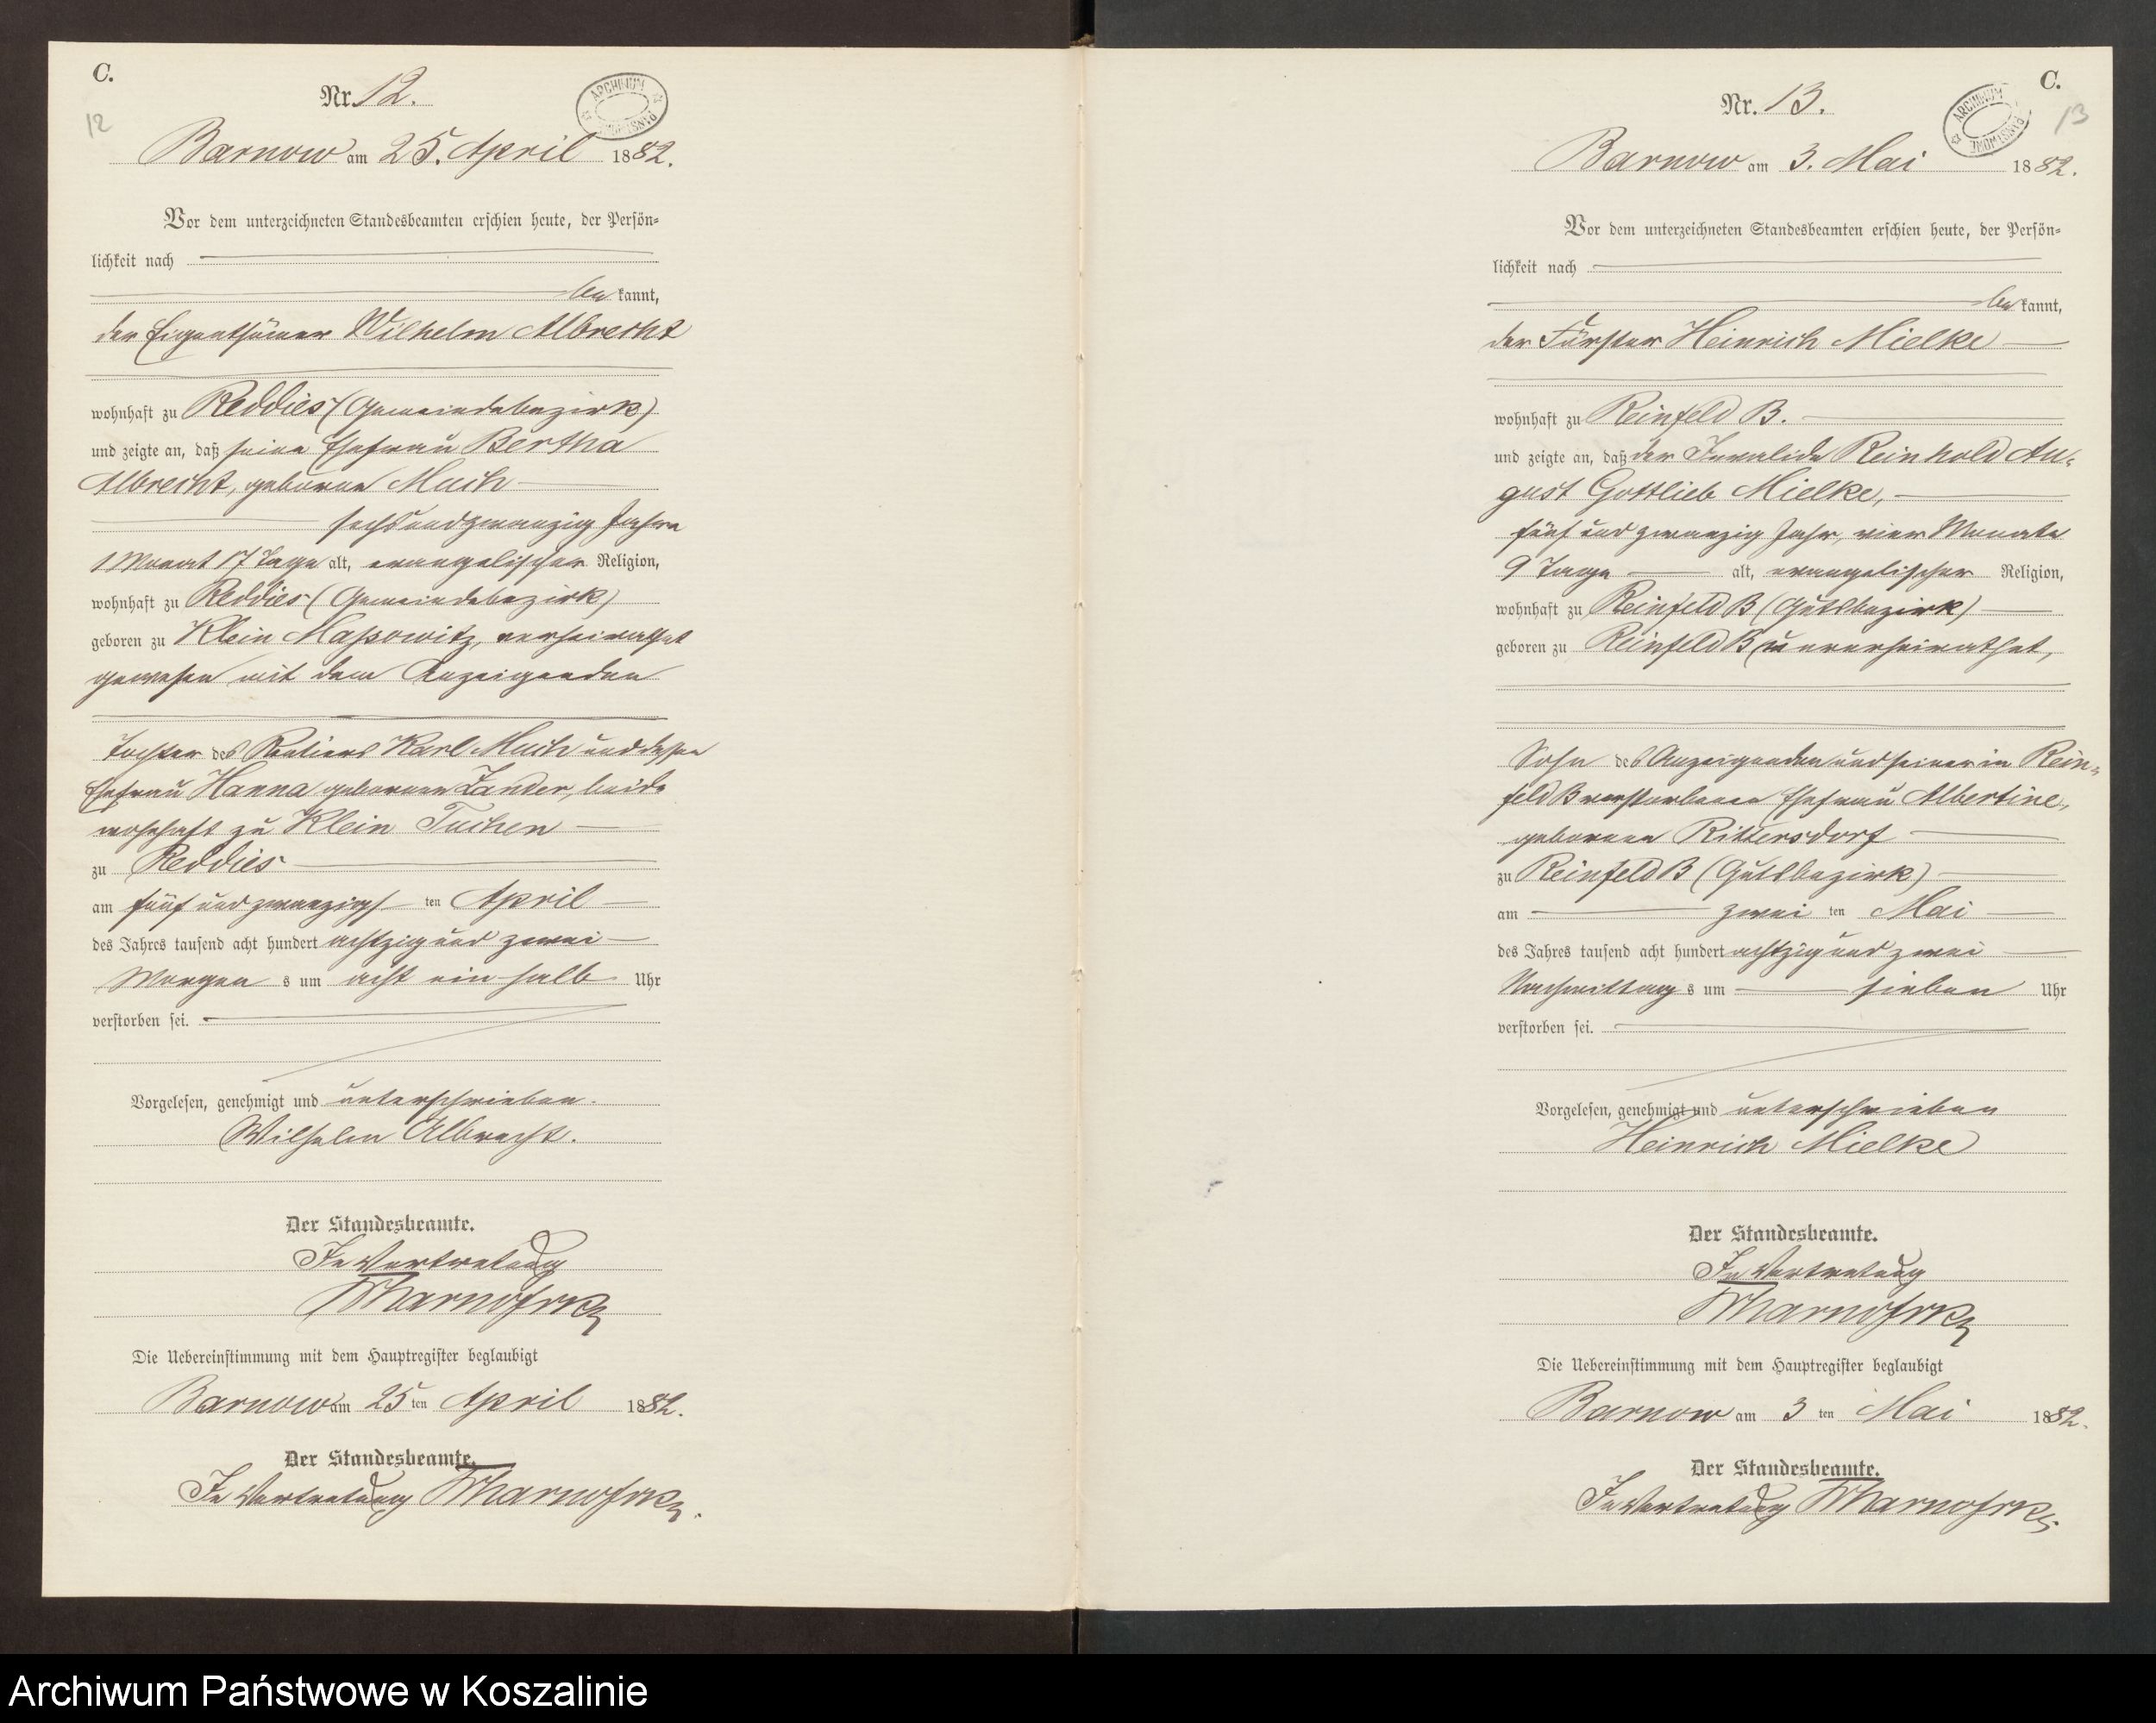 C.
Nr. 12.
12
ARCHIWUM PAŃSTWOWE
Barnow am 25. April 1882.
Vor dem unterzeichneten Standesbeamten erschien heute, der Persön-
lichkeit nach
be kannt,
der Eigenthümer Wilhelm Albrecht
wohnhaft zu Reddies (Gemeindebezirk)
und zeigte an, daß seine Ehefrau Bertha
Albrecht, geborene Mach
sechsundzwanzig Jahre
1 Monat 17 Tage alt, evangelischer Religion,
wohnhaft zu Reddies (Gemeindebezirk)
geboren zu Klein Massowitz, verheirathet
gewesen mit dem Anzeigenden
Tochter des Rentiers Karl Mach und dessen
Ehefrau Hanna geborenen Zander, beide
wohnhaft zu Klein Tuchen
zu Reddies
am fünf und zwanzigs ten April
des Jahres tausend acht hundert achtzig und zwei
Morgen s um acht ein halb Uhr
verstorben sei.
Vorgelesen, genehmigt und unterschrieben.
Wilhelm Albrecht.
Der Standesbeamte.
In Vertretung
Die Uebereinstimmung mit dem Hauptregister beglaubigt
Barnow am 25 ten April 1882.
Der Standesbeamte.
In Vertretung
C.
Nr. 13.
13
ARCHIWUM PAŃSTWOWE
Barnow am 3. Mai 1882.
Vor dem unterzeichneten Standesbeamten erschien heute, der Persön-
lichkeit nach
be kannt,
der Förster Heinrich Mielke
wohnhaft zu Reinfeld B.
und zeigte an, daß der Invalide Reinhold Au-
gust Gottlieb Mielke,
fünf und zwanzig Jahr, vier Monate
9 Tage alt, evangelischer Religion,
wohnhaft zu Reinfeld B (Gutsbezirk)
geboren zu Reinfeld B unverheirathet,
Sohn des Anzeigenden und seiner in Rein-
feld B verstorbenen Ehefrau Albertine,
geborenen Rittersdorf
zu Reinfeld B (Gutsbezirk)
am zwei ten Mai
des Jahres tausend acht hundert achtzig und zwei
Nachmittag s um sieben Uhr
verstorben sei.
Vorgelesen, genehmigt und unterschrieben
Heinrich Mielke
Der Standesbeamte.
In Vertretung
Die Uebereinstimmung mit dem Hauptregister beglaubigt
Barnow am 3 ten Mai 1882.
Der Standesbeamte.
In Vertretung
Archiwum Państwowe w Koszalinie